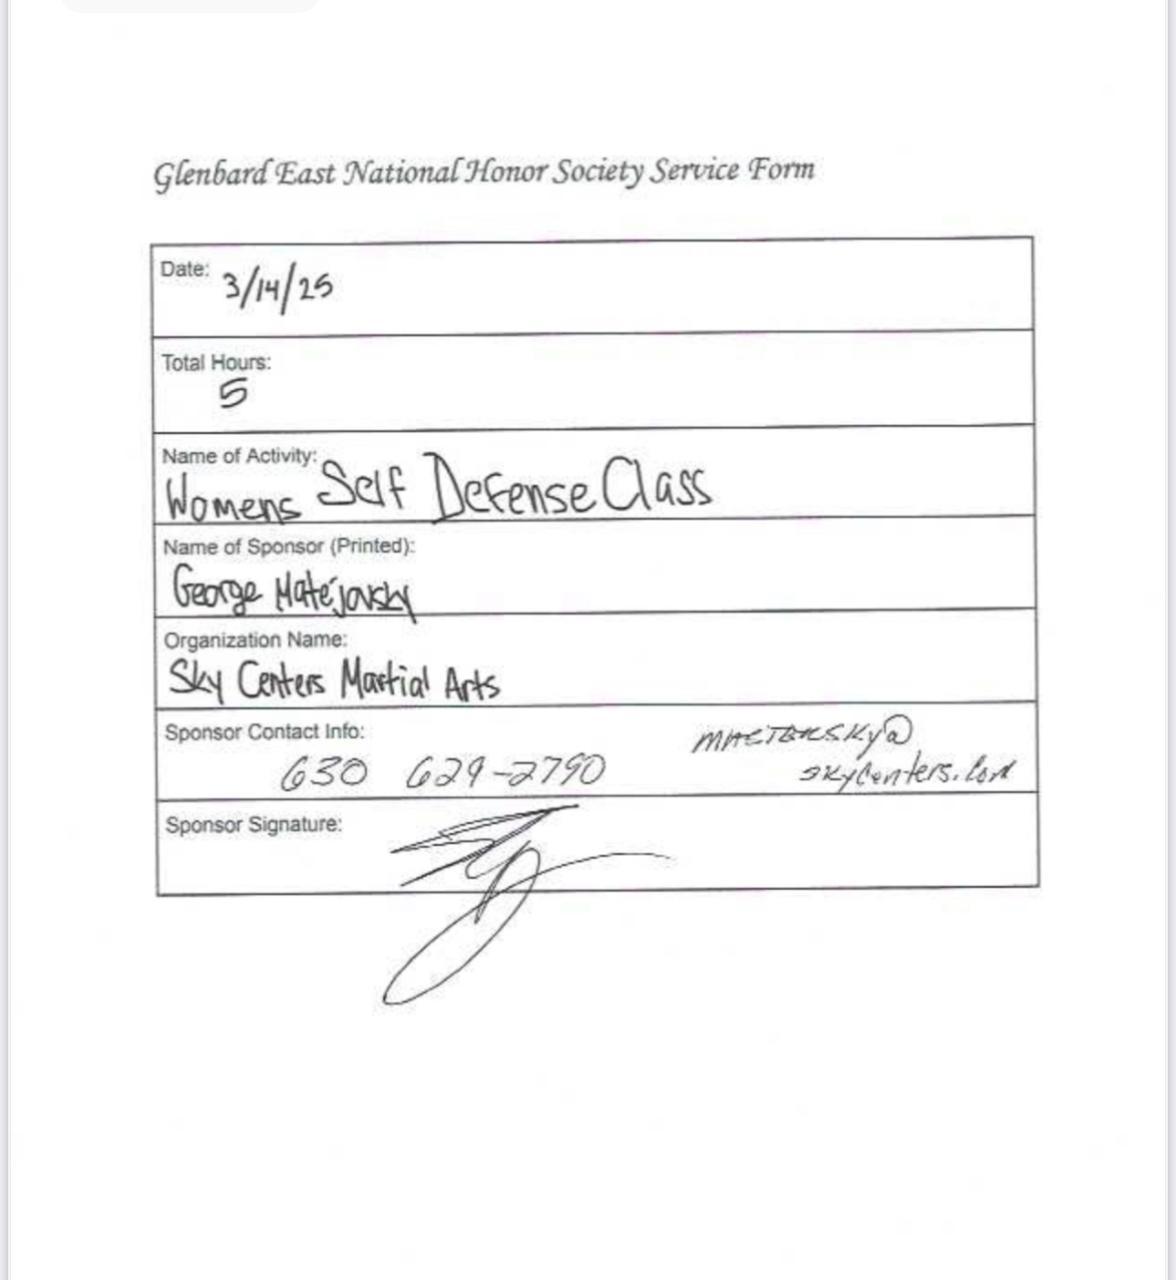 Glenbard East National Honor Society Service Form
Date: 3/14/25
Total Hours:
5
Name of Activity:
Womens Self Defense Class
Name of Sponsor (Printed):
George Matejovsky
Organization Name:
Sky Centers Martial Arts
Sponsor Contact Info:
630 629-2790
MASTERSKy@
skycenters.com
Sponsor Signature: